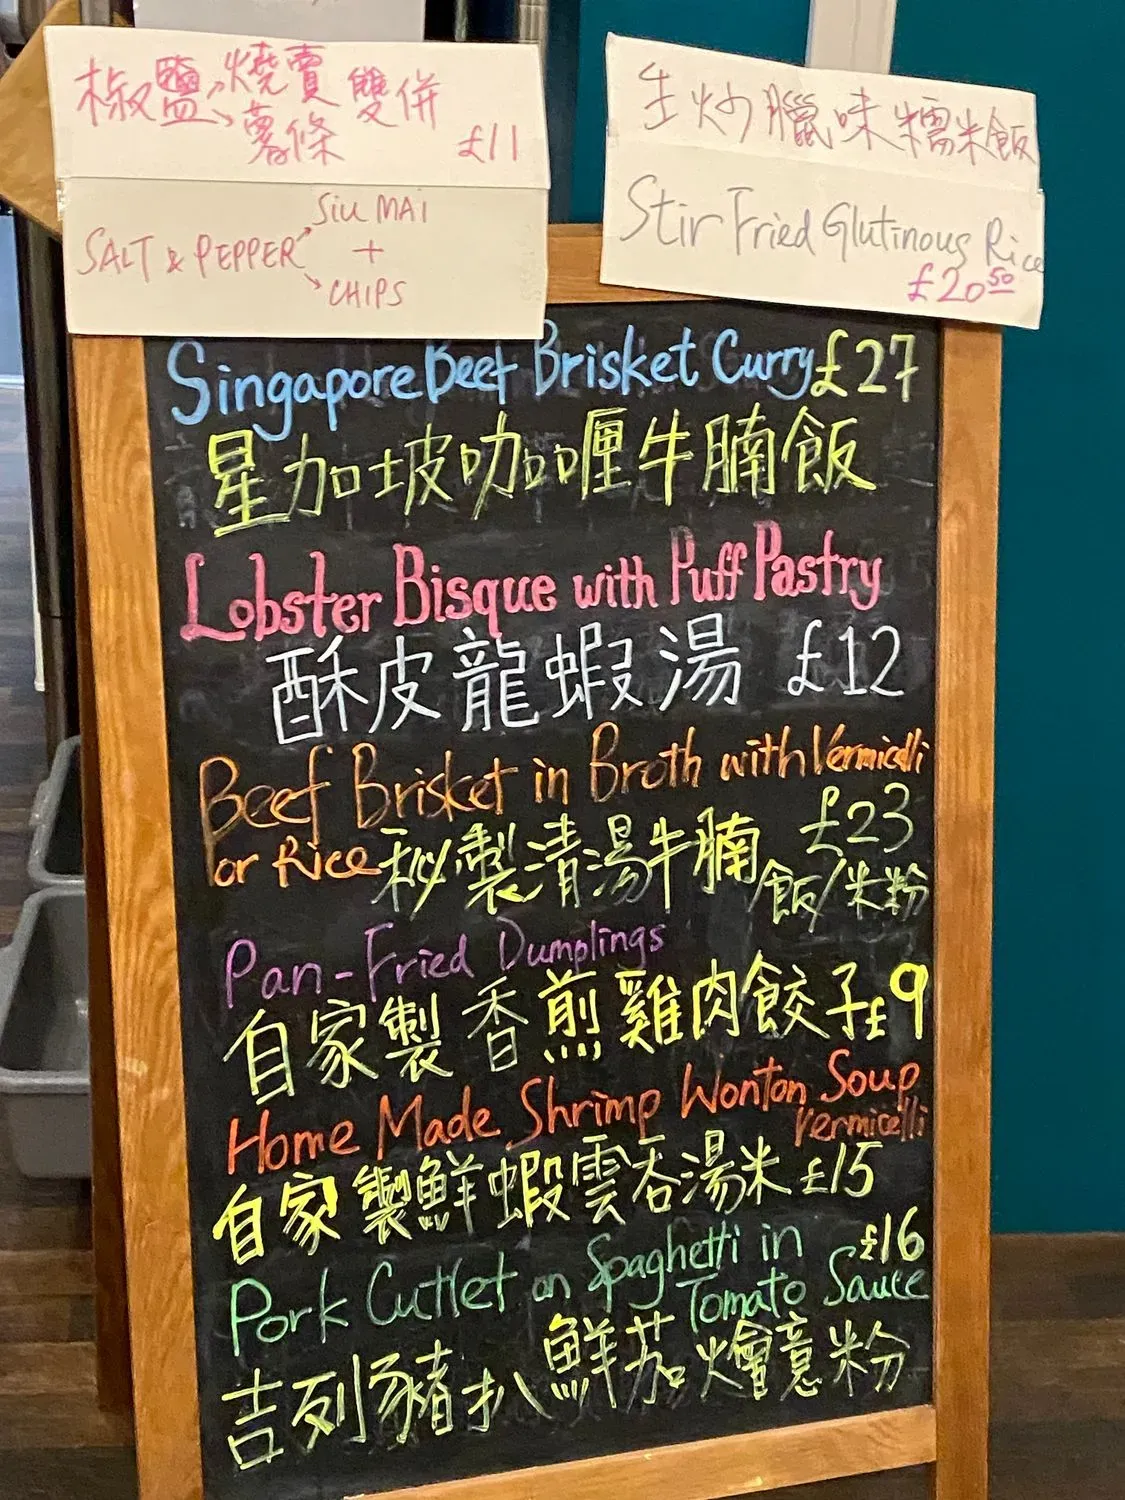 椒鹽 燒賣 雙併
薯條 £11
SIU MAI
SALT & PEPPER +
CHIPS
生炒臘味糯米飯
Stir Fried Glutinous Rice
£20.50
Singapore Beef Brisket Curry £27
星加坡咖喱牛腩飯
Lobster Bisque with Puff Pastry
酥皮龍蝦湯 £12
Beef Brisket in Broth with Vermicelli
or Rice 秘製清湯牛腩 £23
飯/米粉
Pan-Fried Dumplings
自家製香煎雞肉餃子 £9
Home Made Shrimp Wonton Soup
Vermicelli
自家製鮮蝦雲吞湯米 £15
Pork Cutlet on Spaghetti in £16
Tomato Sauce
吉列豬扒鮮茄燴意粉